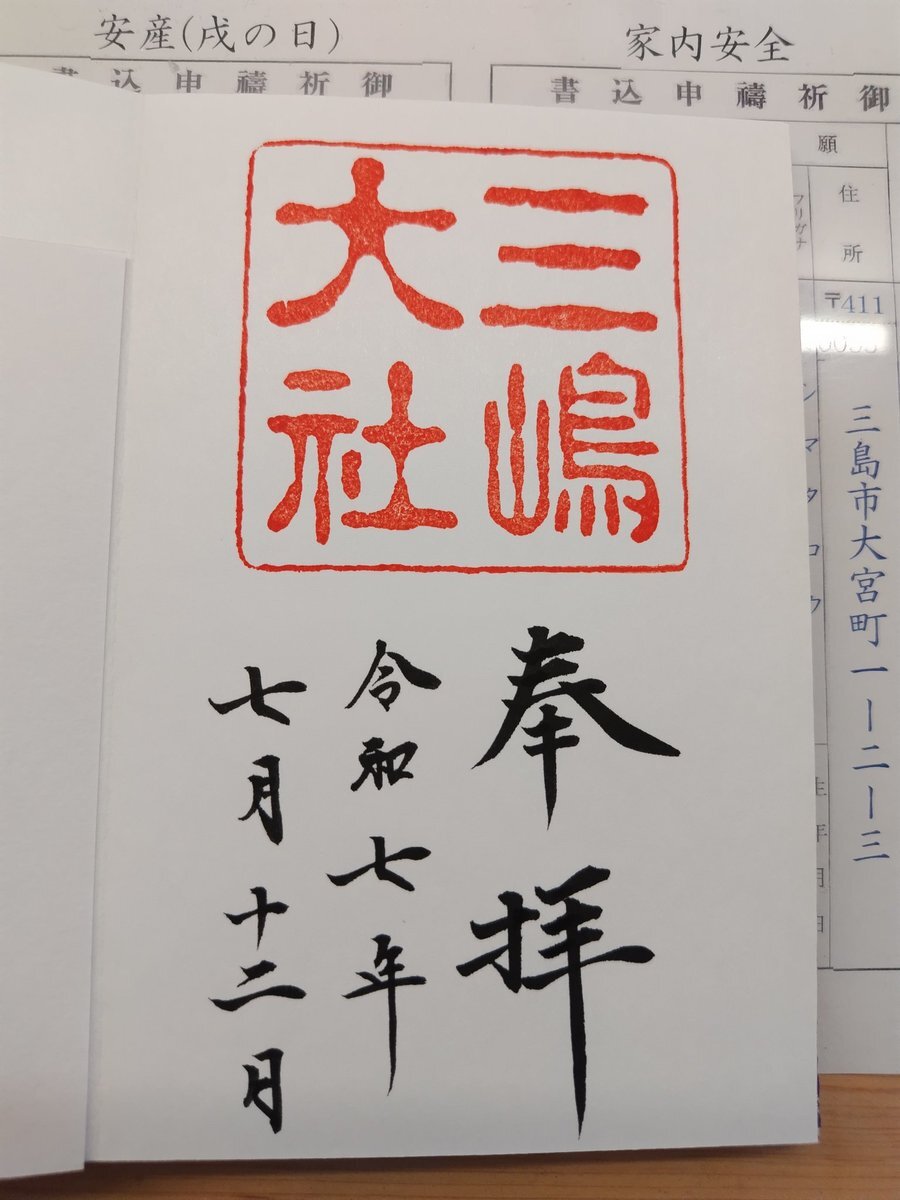 安産(戌の日)
家内安全
御祈禱申込書
御祈禱申込書
三嶋
大社
奉拝
令和七年
七月十二日
願
住所
フリガナ
〒411
三島市大宮町一ー二ー三
生年月日